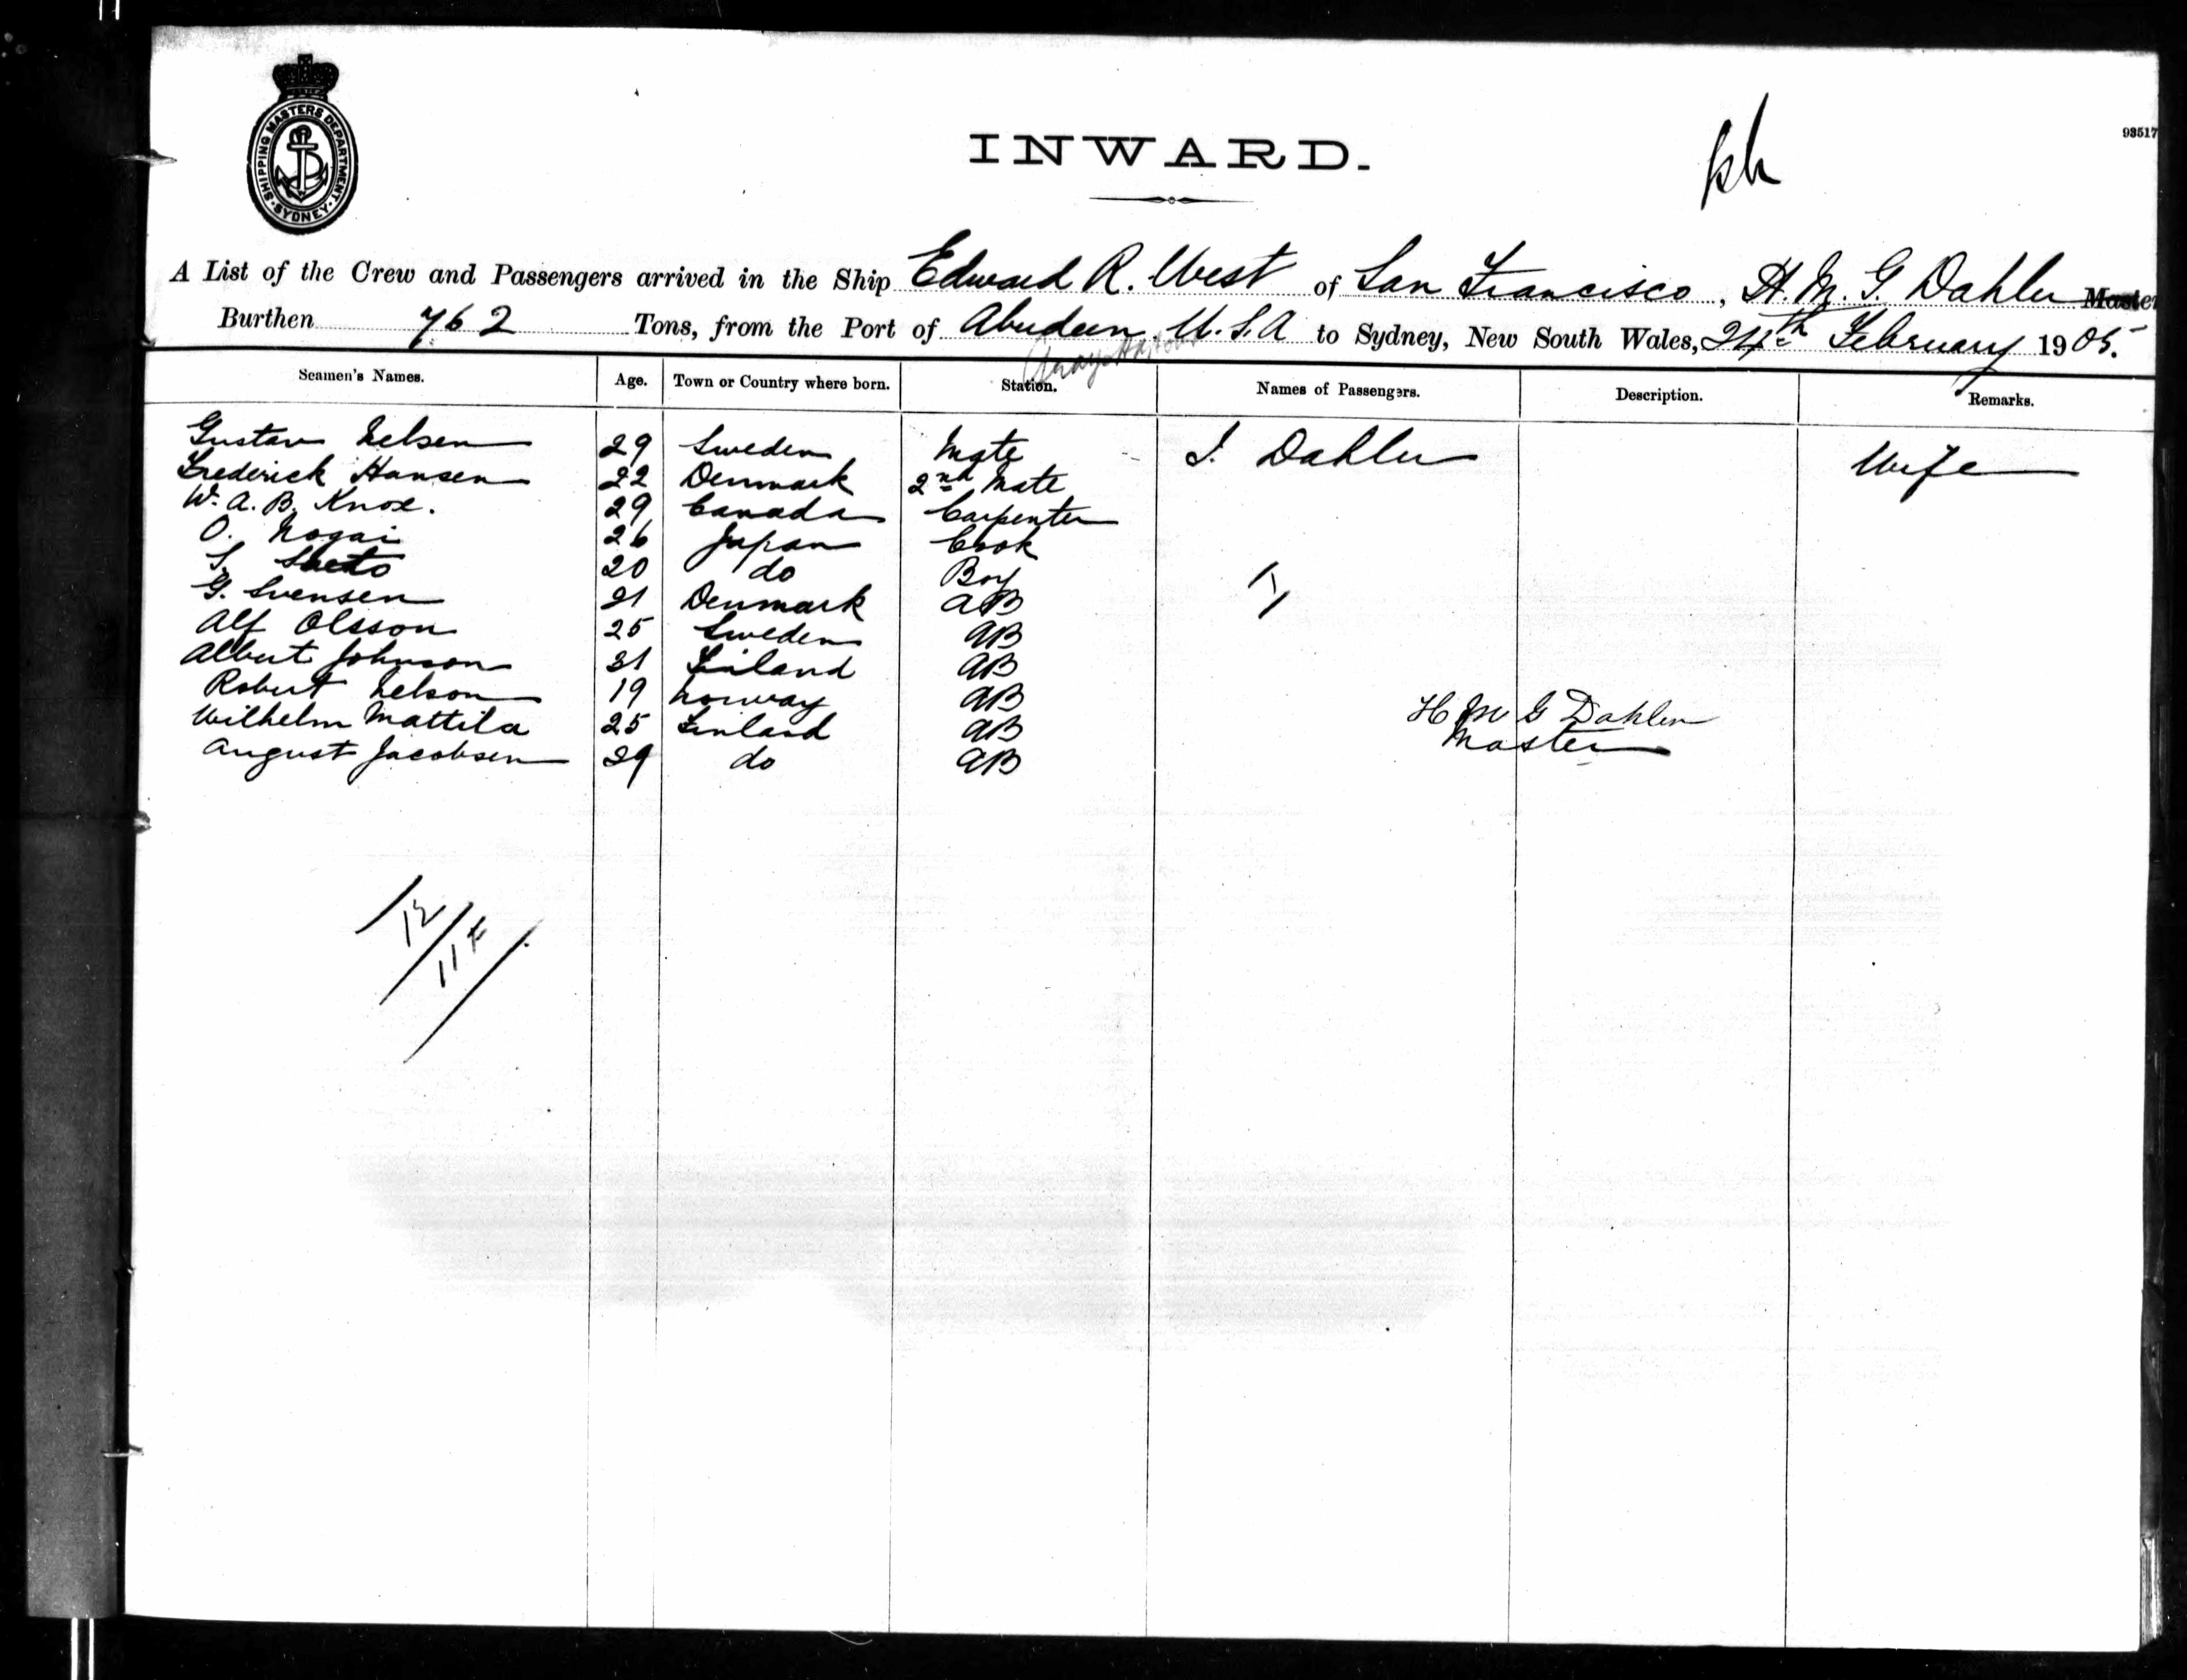 SHIPPING MASTERS DEPARTMENT. SYDNEY.
INWARD.
93517
A List of the Crew and Passengers arrived in the Ship Edward R. West of San Francisco, H. M. G. Dahler Master
Burthen 762 Tons, from the Port of Aberdeen U.S.A to Sydney, New South Wales, 24th February 1905.
Seamen's Names. Age. Town or Country where born. Station. Names of Passengers. Description. Remarks.
Gustav Nelsen 29 Sweden Mate J. Dahler Wife
Frederick Hansen 22 Denmark 2nd Mate
W. A. B. Knox. 29 Canada Carpenter
O. Nogai 26 Japan Cook
S. 20 do Boy
G. Svensen 21 Denmark AB
Alf Olsson 25 Sweden AB
Albert Johnson 31 Finland AB
Robert Nelson 19 Norway AB
Wilhelm Mattila 25 Finland AB
August Jacobsen 29 do AB
H M G Dahler
Master
12
11